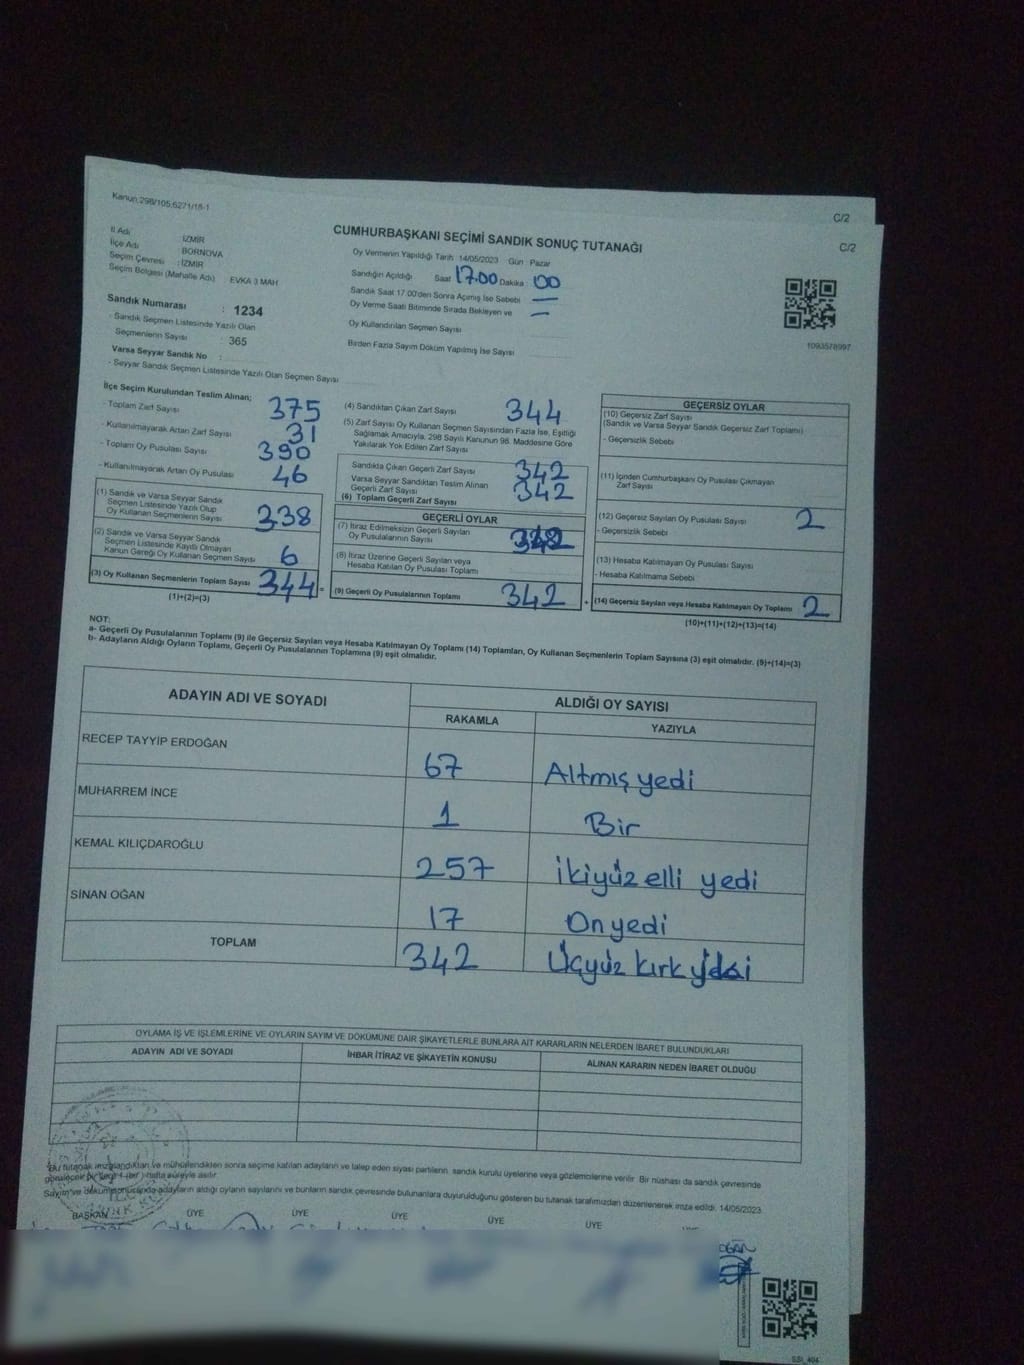 Kanun 298/105,6271/18-1
C/2
C/2
CUMHURBAŞKANI SEÇİMİ SANDIK SONUÇ TUTANAĞI
İl Adı İZMİR
İlçe Adı BORNOVA
Seçim Çevresi : İZMİR
Seçim Bölgesi (Mahalle Adı) EVKA 3 MAH
Oy Vermenin Yapıldığı Tarih: 14/05/2023 Gün: Pazar
Sandığın Açıldığı Saat 17.00 Dakika: 00
Sandık Saat 17.00'den Sonra Açımış İse Sebebi —
Oy Verme Saati Bitiminde Sırada Bekleyen ve —
Oy Kullandırılan Seçmen Sayısı
Birden Fazla Sayım Döküm Yapılmış İse Sayısı
1093578997
Sandık Numarası : 1234
- Sandık Seçmen Listesinde Yazılı Olan
Seçmenlerin Sayısı : 365
Varsa Seyyar Sandık No :
- Seyyar Sandık Seçmen Listesinde Yazılı Olan Seçmen Sayısı
İlçe Seçim Kurulundan Teslim Alınan;
- Toplam Zarf Sayısı 375
- Kullanılmayarak Artan Zarf Sayısı 31
- Toplam Oy Pusulası Sayısı 390
- Kullanılmayarak Artan Oy Pusulası 46
(1) Sandık ve Varsa Seyyar Sandık
Seçmen Listesinde Yazılı Olup
Oy Kullanan Seçmenlerin Sayısı 338
(2) Sandık ve Varsa Seyyar Sandık
Seçmen Listesinde Kayıtlı Olmayan
Kanun Gereği Oy Kullanan Seçmen Sayısı 6
(3) Oy Kullanan Seçmenlerin Toplam Sayısı 344 =
(1)+(2)=(3)
(4) Sandıktan Çıkan Zarf Sayısı 344
(5) Zarf Sayısı Oy Kullanan Seçmen Sayısından Fazla İse, Eşitliği
Sağlamak Amacıyla, 298 Sayılı Kanunun 98. Maddesine Göre
Yakılarak Yok Edilen Zarf Sayısı
Sandıkta Çıkan Geçerli Zarf Sayısı 342
Varsa Seyyar Sandıktan Teslim Alınan
Geçerli Zarf Sayısı
(6) Toplam Geçerli Zarf Sayısı 342
GEÇERLİ OYLAR
(7) İtiraz Edilmeksizin Geçerli Sayılan
Oy Pusulalarının Sayısı 342
(8) İtiraz Üzerine Geçerli Sayılan veya
Hesaba Katılan Oy Pusulası Toplamı
(9) Geçerli Oy Pusulalarının Toplamı 342 +
GEÇERSİZ OYLAR
(10) Geçersiz Zarf Sayısı
(Sandık ve Varsa Seyyar Sandık Geçersiz Zarf Toplamı)
- Geçersizlik Sebebi
(11) İçinden Cumhurbaşkanı Oy Pusulası Çıkmayan
Zarf Sayısı
(12) Geçersiz Sayılan Oy Pusulası Sayısı 2
- Geçersizlik Sebebi
(13) Hesaba Katılmayan Oy Pusulası Sayısı
- Hesaba Katılmama Sebebi
(14) Geçersiz Sayılan veya Hesaba Katılmayan Oy Toplamı 2
(10)+(11)+(12)+(13)=(14)
NOT:
a- Geçerli Oy Pusulalarının Toplamı (9) ile Geçersiz Sayılan veya Hesaba Katılmayan Oy Toplamı (14) Toplamları, Oy Kullanan Seçmenlerin Toplam Sayısına (3) eşit olmalıdır. (9)+(14)=(3)
b- Adayların Aldığı Oyların Toplamı, Geçerli Oy Pusulalarının Toplamına (9) eşit olmalıdır.
ADAYIN ADI VE SOYADI ALDIĞI OY SAYISI
RAKAMLA YAZIYLA
RECEP TAYYİP ERDOĞAN 67 Altmış yedi
MUHARREM İNCE 1 Bir
KEMAL KILIÇDAROĞLU 257 ikiyüz elli yedi
SİNAN OĞAN 17 On yedi
TOPLAM 342 Üçyüz kırk
OYLAMA İŞ VE İŞLEMLERİNE VE OYLARIN SAYIM VE DÖKÜMÜNE DAİR ŞİKAYETLERLE BUNLARA AİT KARARLARIN NELERDEN İBARET BULUNDUKLARI
ADAYIN ADI VE SOYADI İHBAR İTİRAZ VE ŞİKAYETİN KONUSU ALINAN KARARIN NEDEN İBARET OLDUĞU
Bu tutanak imzalandıktan ve mühürlendikten sonra seçime katılan adayların ve talep eden siyasi partilerin sandık kurulu üyelerine veya gözlemcilerine verilir. Bir nüshası da sandık çevresinde
görülecek bir yere 1 (bir) hafta süreyle asılır.
Sayım ve döküm sonucunda adayların aldığı oyların sayılarını ve bunların sandık çevresinde bulunanlara duyurulduğunu gösteren bu tutanak tarafımızdan düzenlenerek imza edildi. 14/05/2023
BAŞKAN ÜYE ÜYE ÜYE ÜYE ÜYE